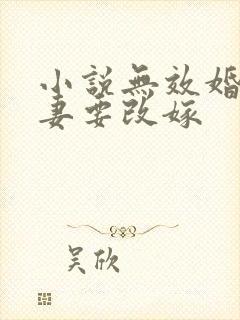 小說無效婚
妻要改嫁
吴欣